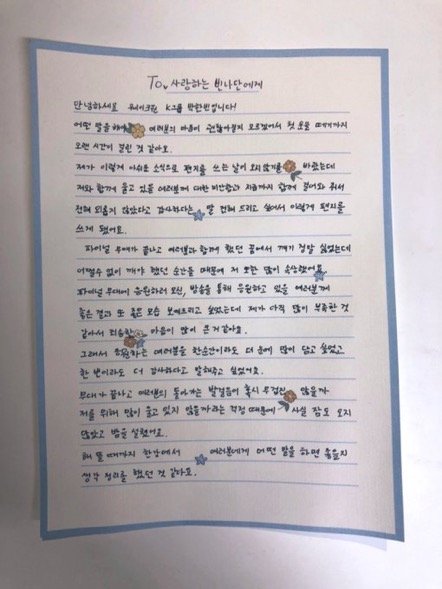 To. 사랑하는 빈나단에게
안녕하세요 웨이크원 K그룹 박한빈입니다!
어떤 말을 해야 여러분의 마음이 괜찮아질지 모르겠어서 첫 운을 떼기까지
오랜 시간이 걸린 것 같아요.
제가 이렇게 아쉬운 소식으로 편지를 쓰는 날이 오지 않기를 바랬는데
저와 함께 울고 있을 여러분께 대한 미안함과 지금까지 함께 걸어와 줘서
전혀 외롭지 않았다고 감사하다는 말 전해 드리고 싶어서 이렇게 편지를
쓰게 됐어요.
파이널 무대가 끝나고 여러분과 함께 했던 꿈에서 깨기 정말 싫었는데
어쩔수 없이 깨야 했던 순간들 때문에 저 또한 많이 속상했어요
파이널 무대에 응원하러 오신, 방송을 통해 응원하고 있을 여러분께
좋은 결과 또 좋은 모습 보여드리고 싶었는데 제가 아직 많이 부족한 것
같아서 죄송한 마음이 많이 든 거 같아요.
그래서 응원하는 여러분을 한순간이라도 더 눈에 많이 담고 싶었고
한 번이라도 더 감사하다고 말해주고 싶었어요.
무대가 끝나고 여러분의 돌아가는 발걸음이 혹시 무겁진 않을까
저를 위해 많이 울고 있지 않을까라는 걱정 때문에 사실 잠도 오지
않았고 밤을 설쳤어요.
해 뜰 때까지 한강에서 여러분에게 어떤 말을 하면 좋을지
생각 정리를 했던 것 같아요.